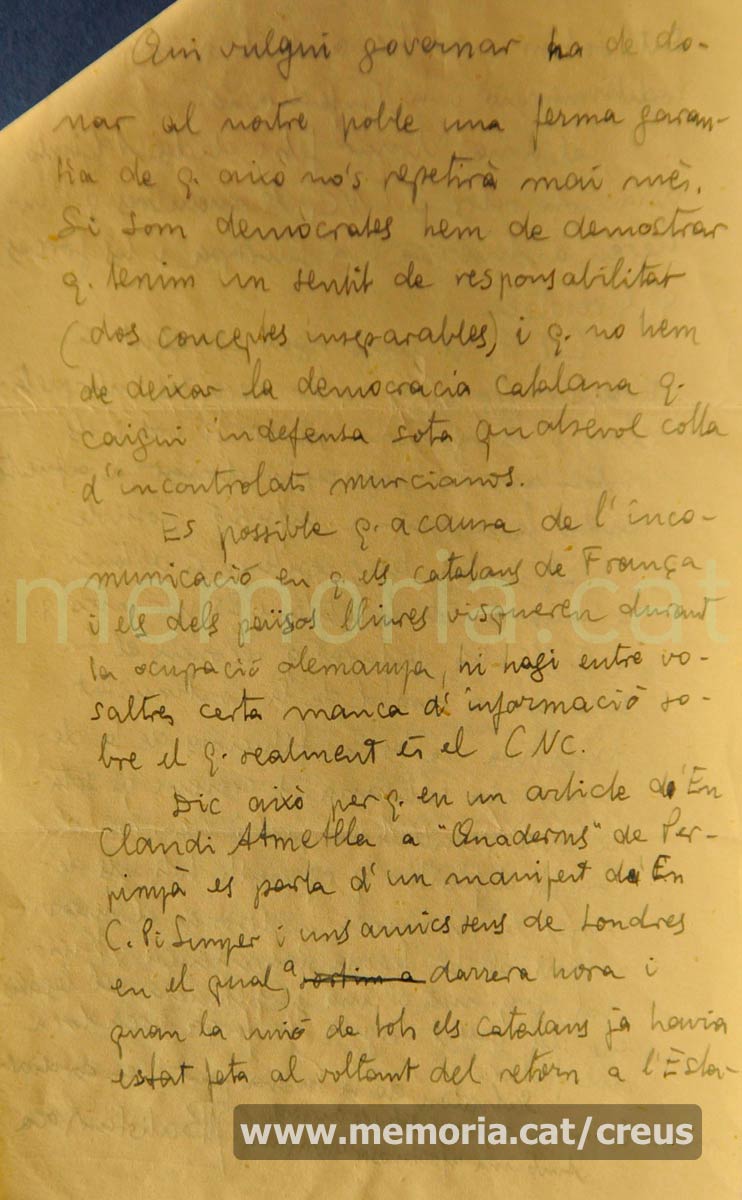 Qui vulgui governar ha de do-
nar al nostre poble una ferma garan-
tia de q. això no's repetirà mai més.
Si som demòcrates hem de demostrar
q. tenim un sentit de responsabilitat
(dos conceptes inseparables) i q. no hem
de deixar la democràcia catalana q.
caigui indefensa sota qualsevol colla
d'incontrolats murcianos.
Es possible q. a causa de l'inco-
municació en q els catalans de França
i els dels països lliures visqueren durant
la ocupació alemanya, hi hagi entre vo-
saltres certa manca d'informació so-
bre el q. realment és el CNC.
Dic això per q. en un article d'En
Claudi Atmetlla a "Quaderns" de Per-
pinyà es parla d'un manifest de En
C. Pi Sunyer i uns amics seus de Londres
en el qual, a darrera hora i
quan la unió de tots els catalans ja havia
estat feta al voltant del retorn a l'Esta-
memoria.cat
www.memoria.cat/creus